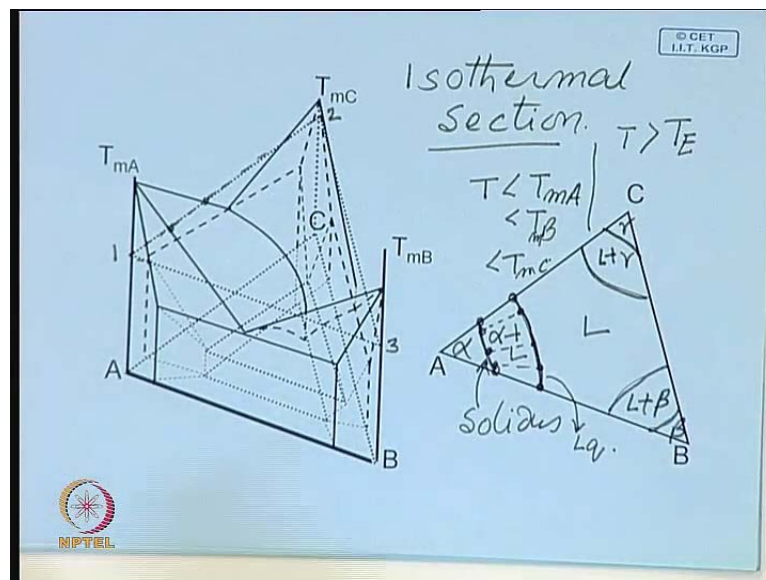 © CET
I.I.T. KGP
Isothermal
section.
T > T_E
T < T_mA
< T_mB
< T_mC
T_mA
T_mC
2
1
C
T_mB
3
A
B
C
γ
L+γ
L
α
α+
L
A
L+β
β
B
Solidus
Lq.
NPTEL